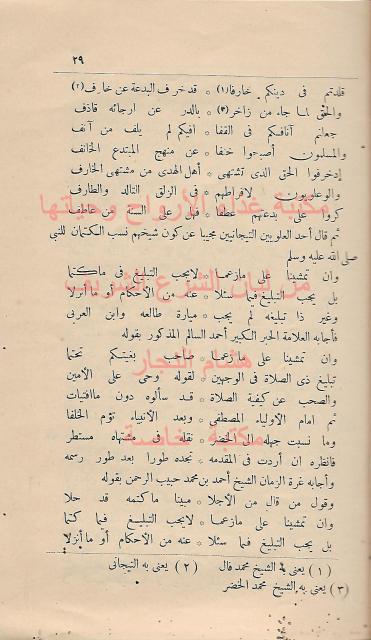 ٢٩
قلدتم فى دينكم خارفا (١) * قد خرف البدعة عن خارف (٢)
والحق لما جاء من زاخر (٣) * بالدر عن ارجائه قاذف
جعلتم آنافكم فى القفا * افيكم لم يلف من آنف
والمسلمون أصبحوا خنفا * عن منهج المبتدع الخائف
إدخرفوا الحق الذى تشتهى * أهل الهدى من مشتهى الخارف
والوعلويون لافراطهم * فى الزلق التالد والطارف
كروا على بدعتهم عطفا * فهل على السنه من عاطف
ثم قال أحد العلويين التيجانيين مجيبا عن كون شيخهم نسب الكتمان للنبي
صلى الله عليه وسلم
وان تمشينا على مازعما * لايجب التبليغ فى ماكتما
بل يجب التبليغ فيما سئلا * عنه من الأحكام أو ما أنزلا
وغير ذا تبليغه لم يجب * ميارة طالعه وابن العربى
فأجابه العلامة الحبر الكبير أحمد السالم المذكور بقوله
وان تمشينا على مازعما * صاحب بغيتكم تحتما
تبليغ ذى الصلاة فى الوجهين * لقوله وحى على الأمين
والصحب عن كيفية الصلاة * قد سألوه دون ماافتيات
ثم امام الاولياء المصطفى * وبعد الانبياء تؤم الخلفا
وما نسبت جهله الى الخضر * نقله فى مشتهاه مستطر
فانظره ان أردت فى المقدمه * تجده طورا بعد طور رسمه
وأجابه غرة الزمان الشيخ أحمد بن محمد حبيب الرحمن بقوله
وقول من قال من الأجلا * مبينا ماكتمه قد حلا
وان تمشينا على مازعما * لايجب التبليغ فيما كتما
بل يجب التبليغ فيما سئلا * عنه من الاحكام أو ما أنزلا
(١) يعنى به الشيخ محمد فال (٢) يعنى به التيجانى
(٣) يعنى به الشيخ محمد الخضر
مكتبة غذاء الأرواح وحياتها
من لبان الشرع الشريف
هشام النجار
مكتبة خاصة